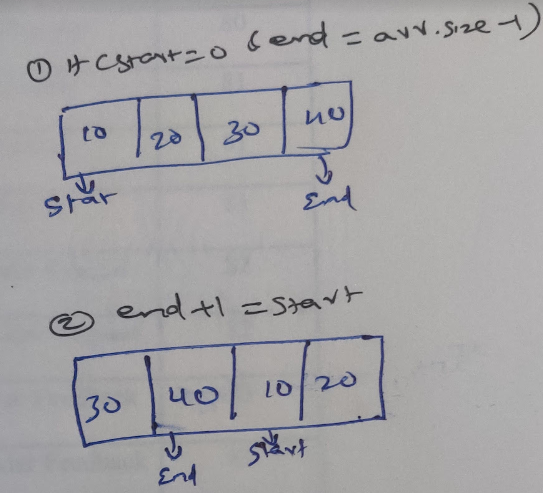 ① if (start=0 & end = arr.size-1)
10 20 30 40
Start End
② end+1 = start
30 40 10 20
End Start